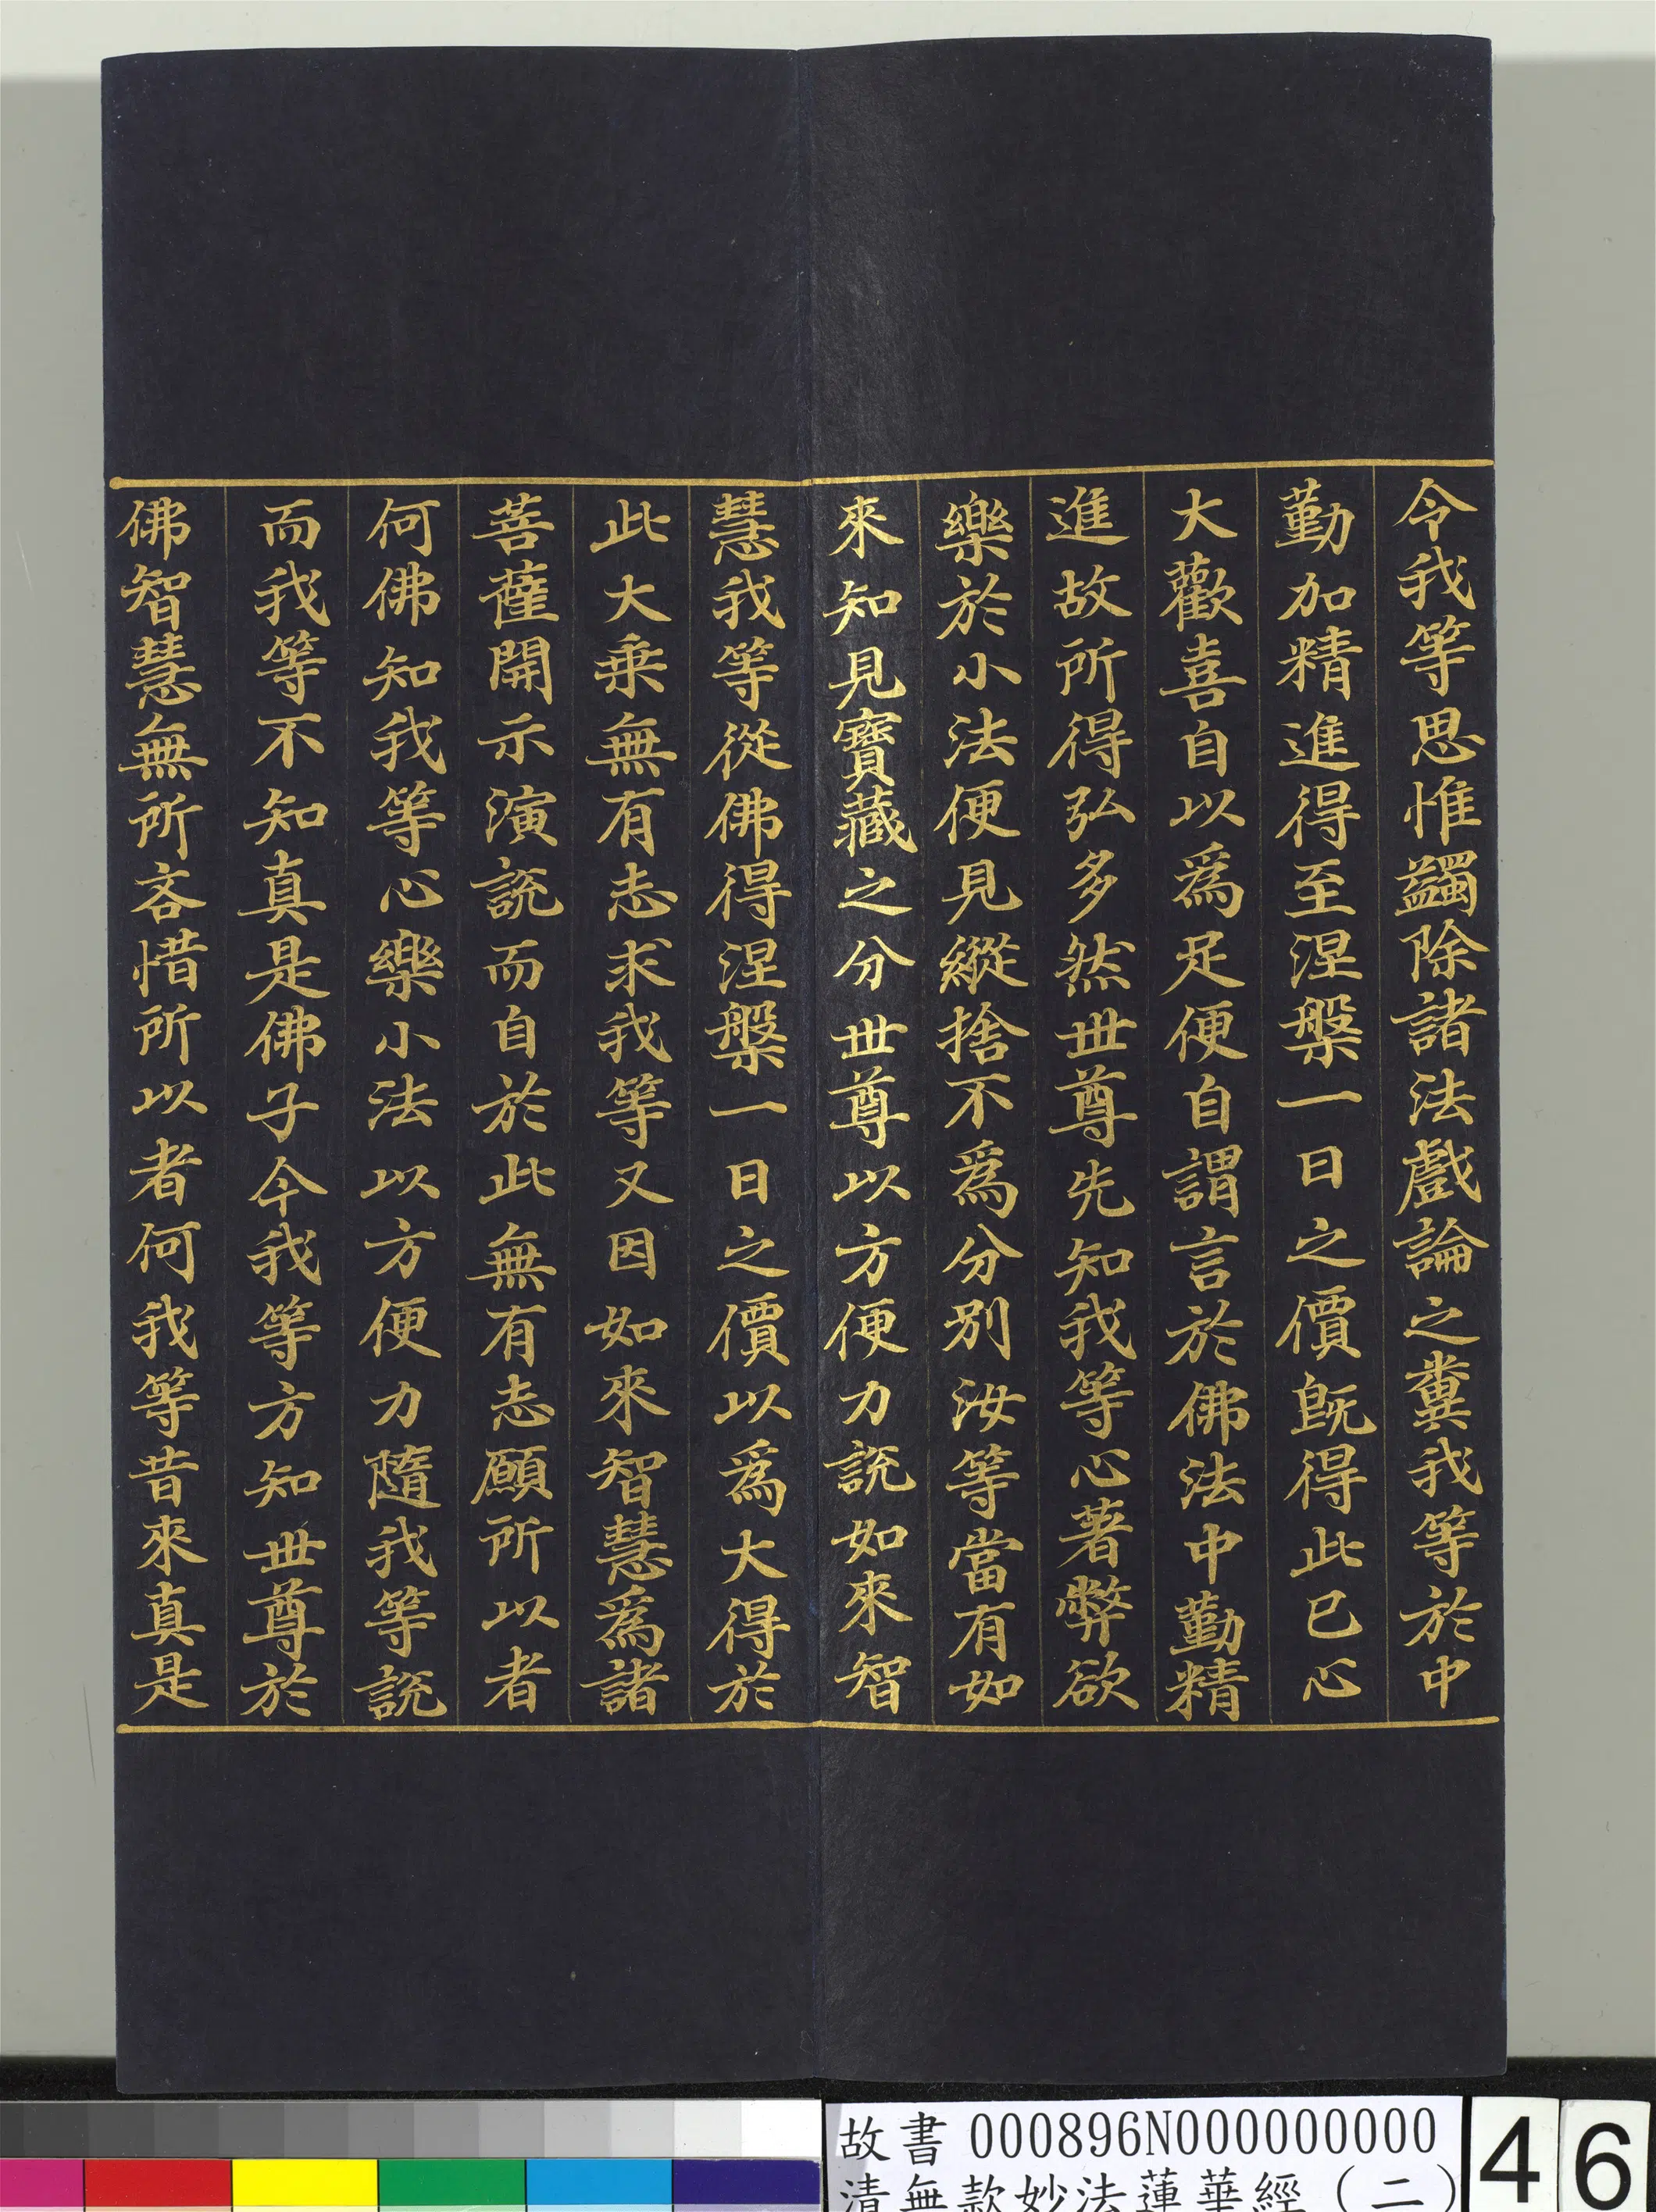 令我等思惟蠲除諸法戲論之糞我等於中
勤加精進得至涅槃一日之價旣得此已心
大歡喜自以爲足便自謂言於佛法中勤精
進故所得弘多然世尊先知我等心著弊欲
樂於小法便見縱捨不爲分別汝等當有如
來知見寶藏之分世尊以方便力說如來智
慧我等從佛得涅槃一日之價以爲大得於
此大乘無有志求我等又因如來智慧爲諸
菩薩開示演說而自於此無有志願所以者
何佛知我等心樂小法以方便力隨我等說
而我等不知真是佛子今我等方知世尊於
佛智慧無所吝惜所以者何我等昔來真是
故書 000896N000000000
清無款妙法蓮華經（二）
46